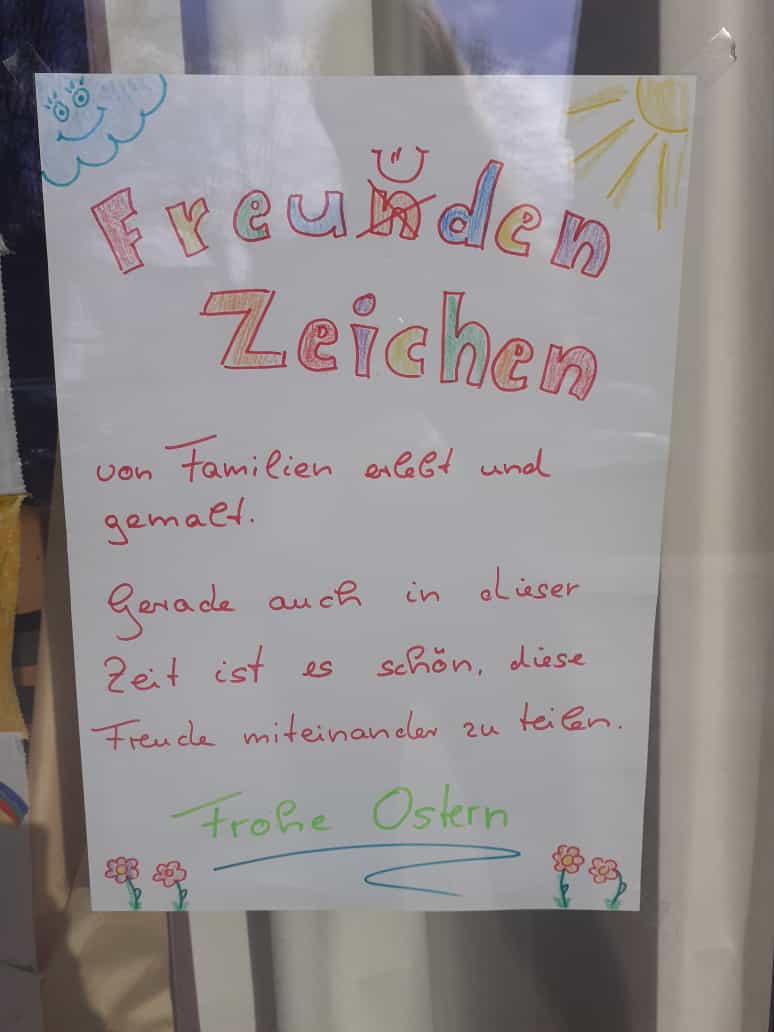 Freunden
Zeichen
von Familien erlebt und
gemalt.
Gerade auch in dieser
Zeit ist es schön, diese
Freude miteinander zu teilen.
Frohe Ostern